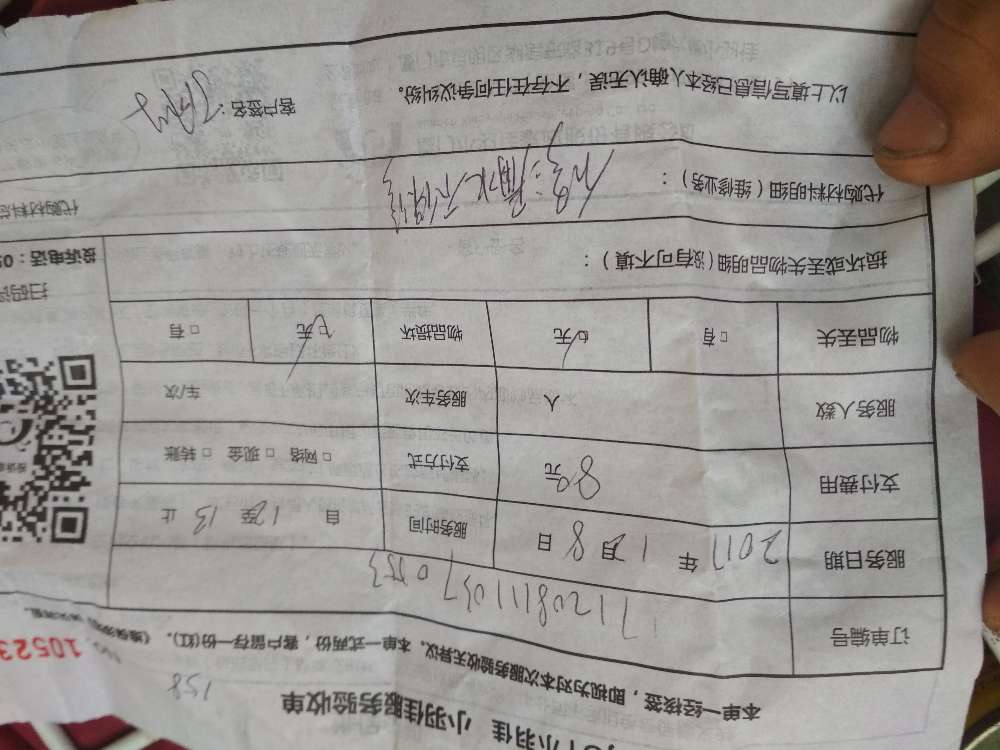 小羽佳 小羽佳服务验收单
158
本单一经核签，即视为对本次服务验收无异议。本单一式两份，客户留存一份(红)。
10523
订单编号
服务日期 2017 年 1 月 8 日 服务时间 自 12 至 13 止
支付费用 80 元 支付方式 □ 网络 □ 现金 □ 转账
服务人数 人 服务车次 车/次
物品丢失 □ 有 元 物品损坏 元 □ 有
损坏或丢失物品明细(没有可不填)：
扫码
投诉电话：05
代购材料明细（维修业务）：
代购材料总
以上填写信息已经本人确认无误，不存在任何争议纠纷。
客户签名：